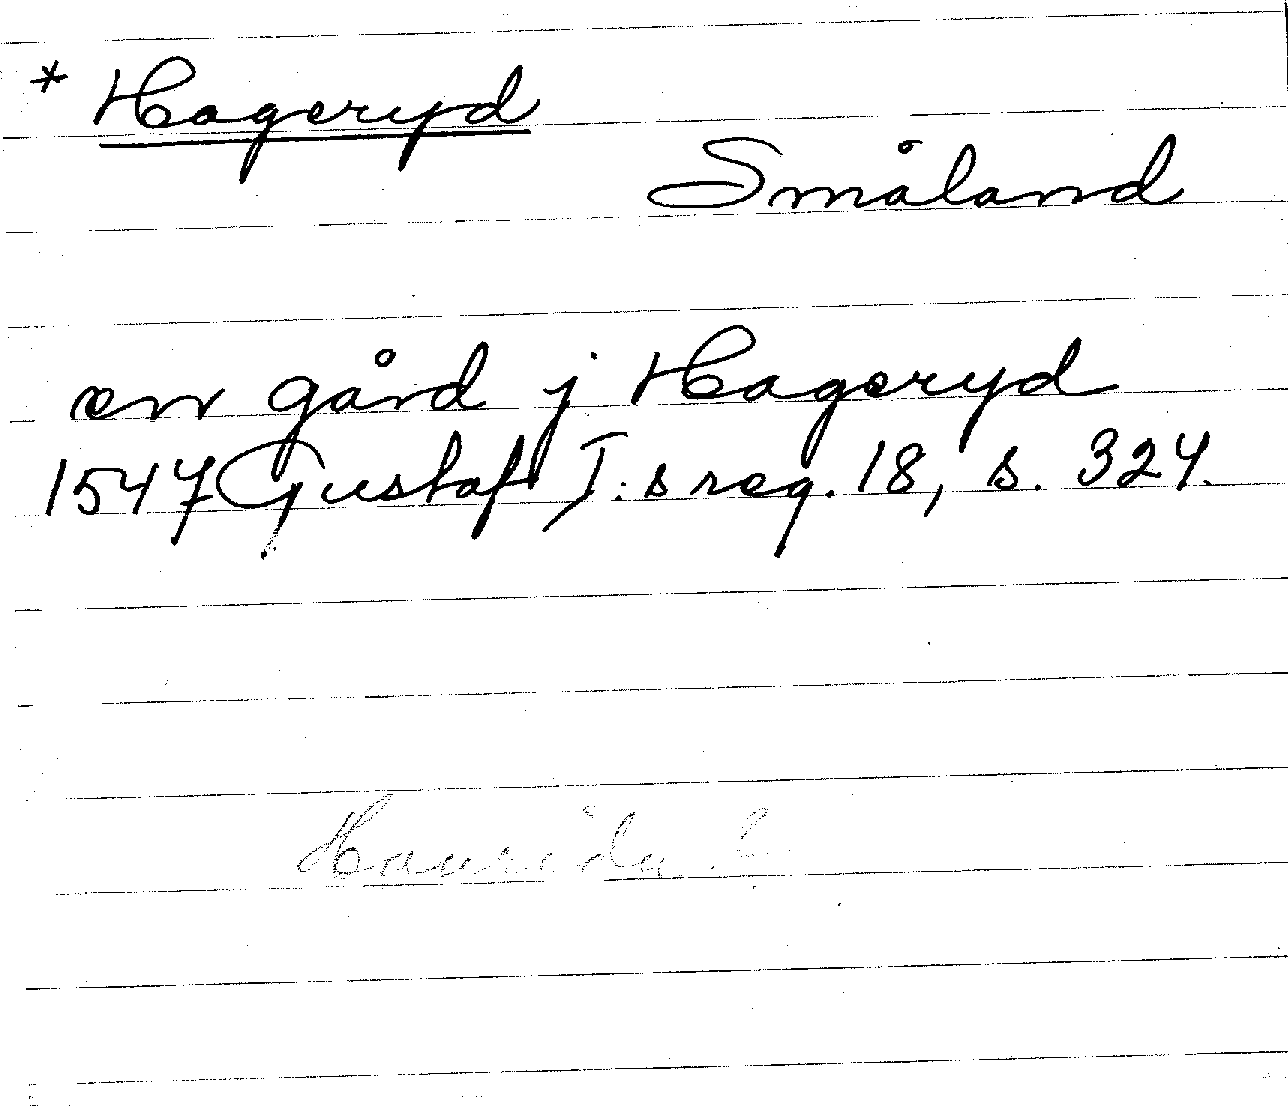 * Hageryd
Småland
en gård j Hageryd
1547 Gustaf I:s reg. 18, s. 324.